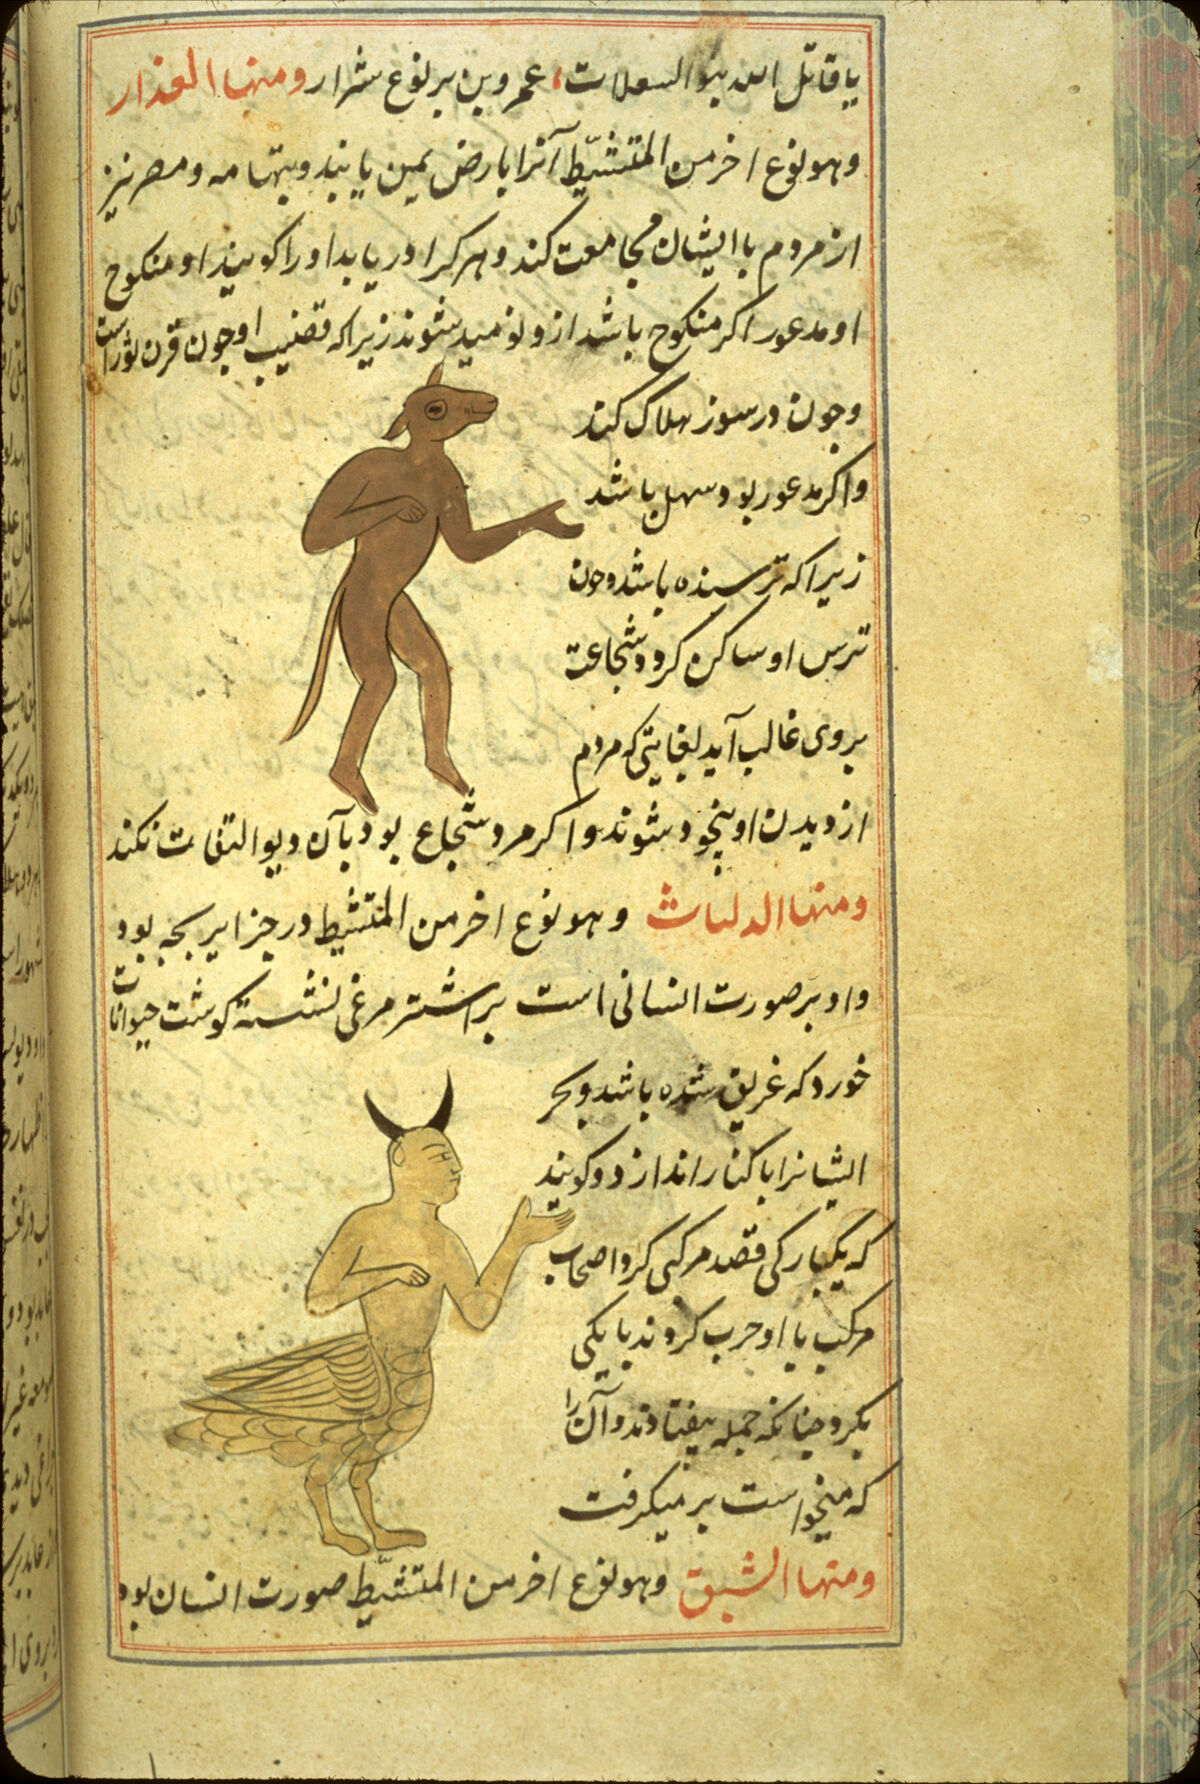 یا قاتل الله بنو السعلات، عمرو بن یربوع شرار ومنها العذار
وهو نوع اخر من المتشیّط آنرا بارض یمین یابند و بتهامه و مصر نیز
از مردم با ایشان مجامعت کند و هر کرا دریابد اورا کویند او منکوح
او مدعور اکر منکوح باشد ازو نومید شوند زیرا که قضیب او چون قرن ثور است
وچون درسوزد هلاک کند
واکر مدعور بود سهل باشد
زیرا که ترسیده باشد و چون
ترس او ساکن کردد شجاعت
بروی غالب آید بغایتی که مردم
از دیدن او بیخود شوند و اکر مرد شجاع بود بآن دیو التفات نکند
ومنها الدلهاث وهو نوع اخر من المتشیط در جزایر بحر بود
واو بر صورت انسانی است بر اشترمرغی نشسته کوشت حیوانات
خورد که غریق شده باشد و بحر
ایشانرا با کنار اندازد و کویند
که یکبارکی قصد مرکبی کرد اصحاب
مرکب با او حرب کردند بانکی
بکرد چنانکه جمله بیفتادند و آن را
که میخواست بر میکرفت
ومنها الشبق وهو نوع اخر من المتشیّط صورت انسان بود